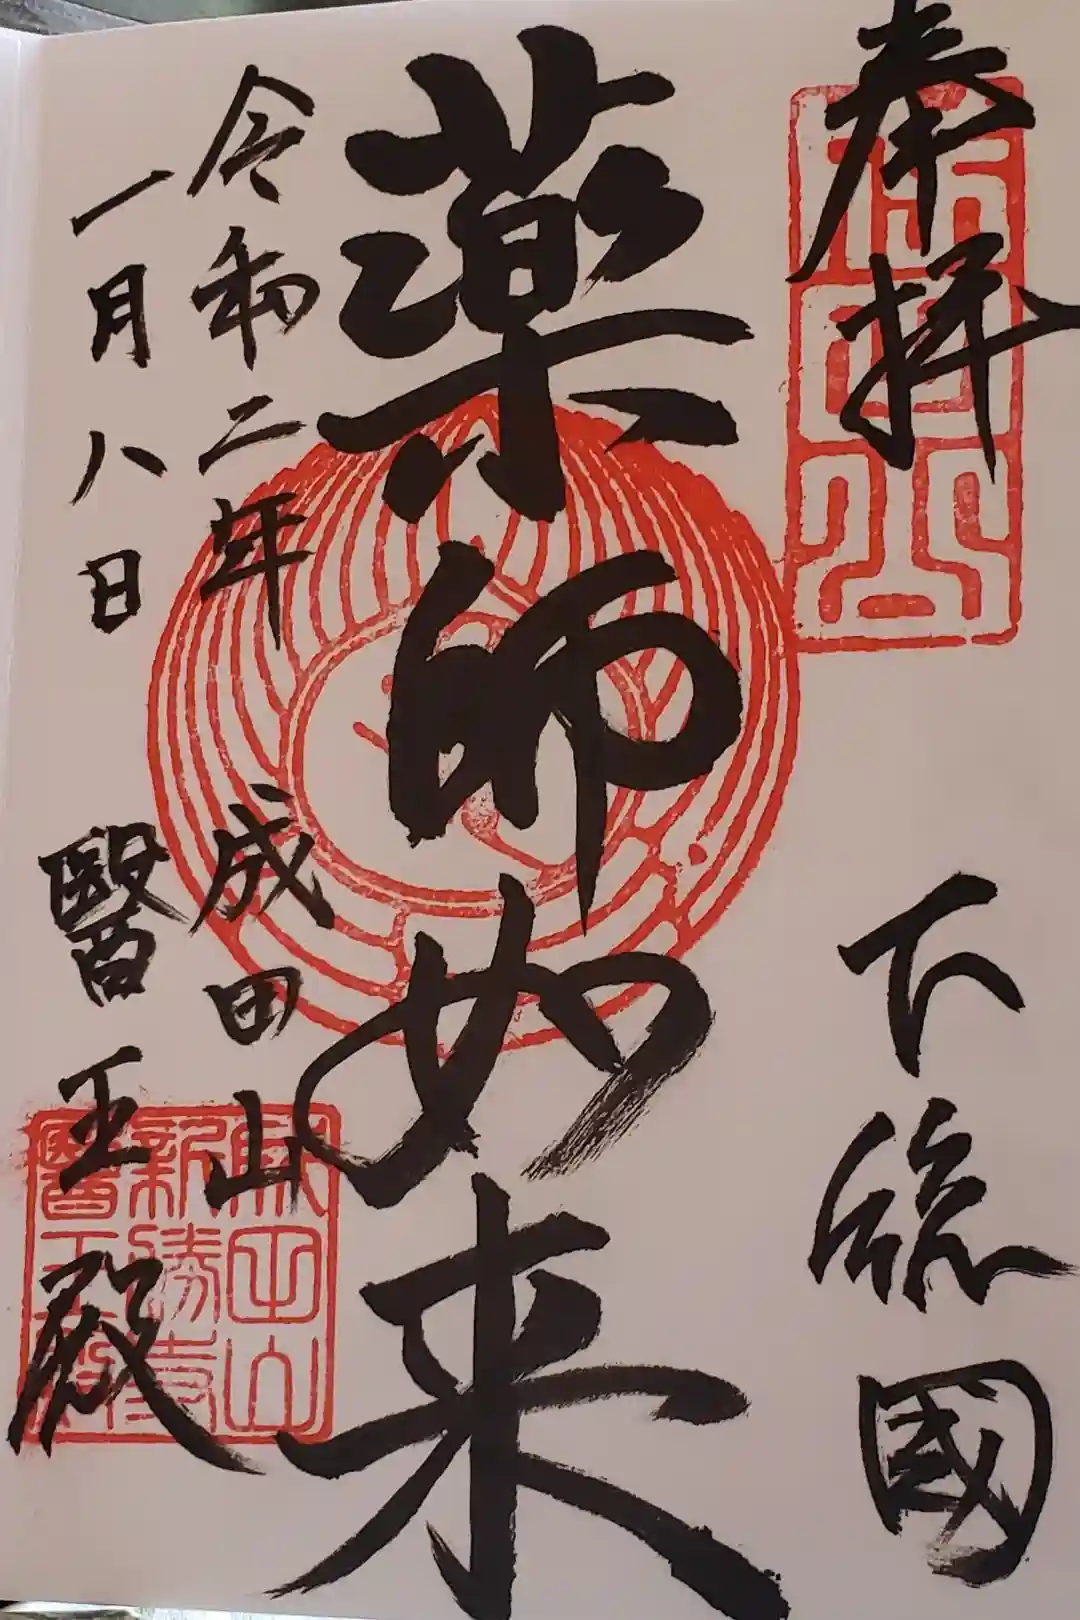 奉拝
下総國
薬師如来
令和二年
一月八日
成田山
醫王殿
成田山
新勝寺
醫王殿